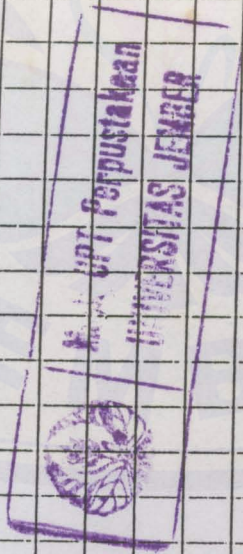 UPT Perpustakaan
UNIVERSITAS JEMBER